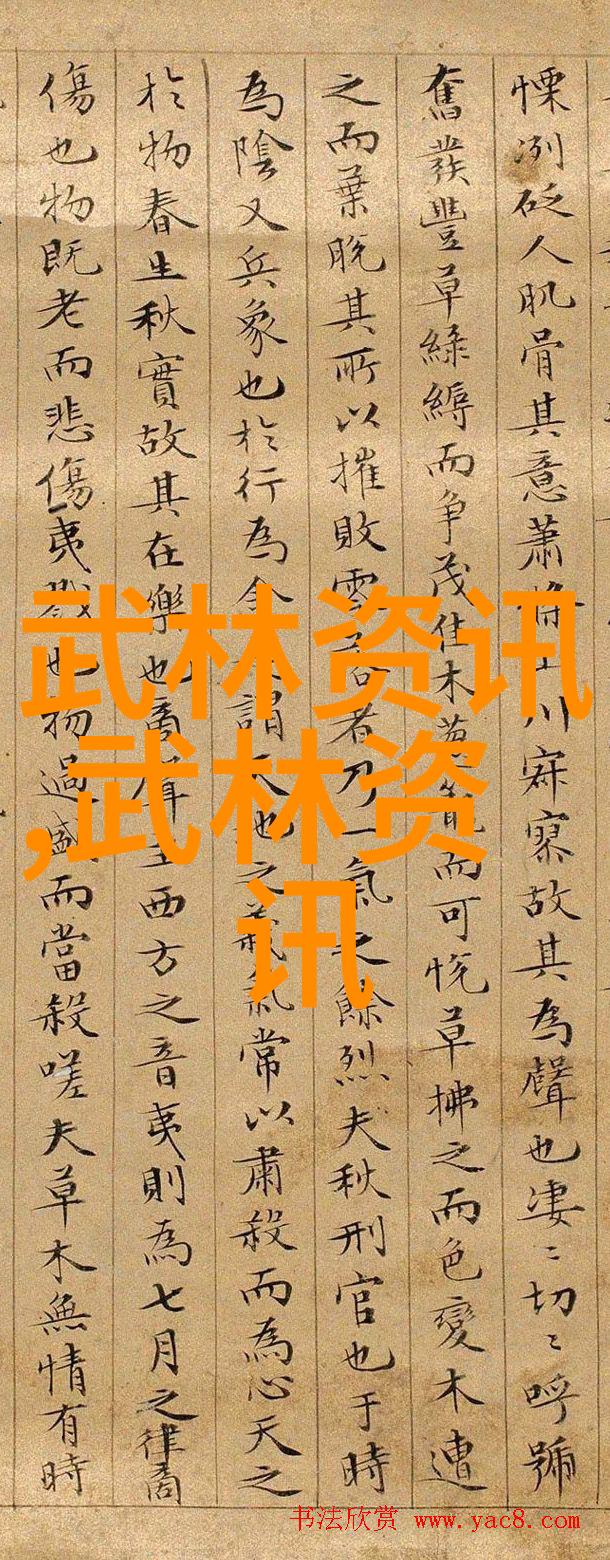 慄冽砭人肌骨其意蕭條山川寂寥故其為聲也凄〻切〻呼號
奮發豐草綠縟而争茂佳木葱籠而可悅草拂之而色變木遭
之而葉脫其所以摧敗零落者乃一氣之餘烈夫秋刑官也于時
為陰又兵象也於行為金謂天地之義氣常以肅殺而為心天之
於物春生秋實故其在樂也商聲主西方之音夷則為七月之律商
傷也物既老而悲傷夷戮也物過盛而當殺嗟夫草木無情有時
武林资讯
,武林资
讯
书法欣赏 www.yac8.com